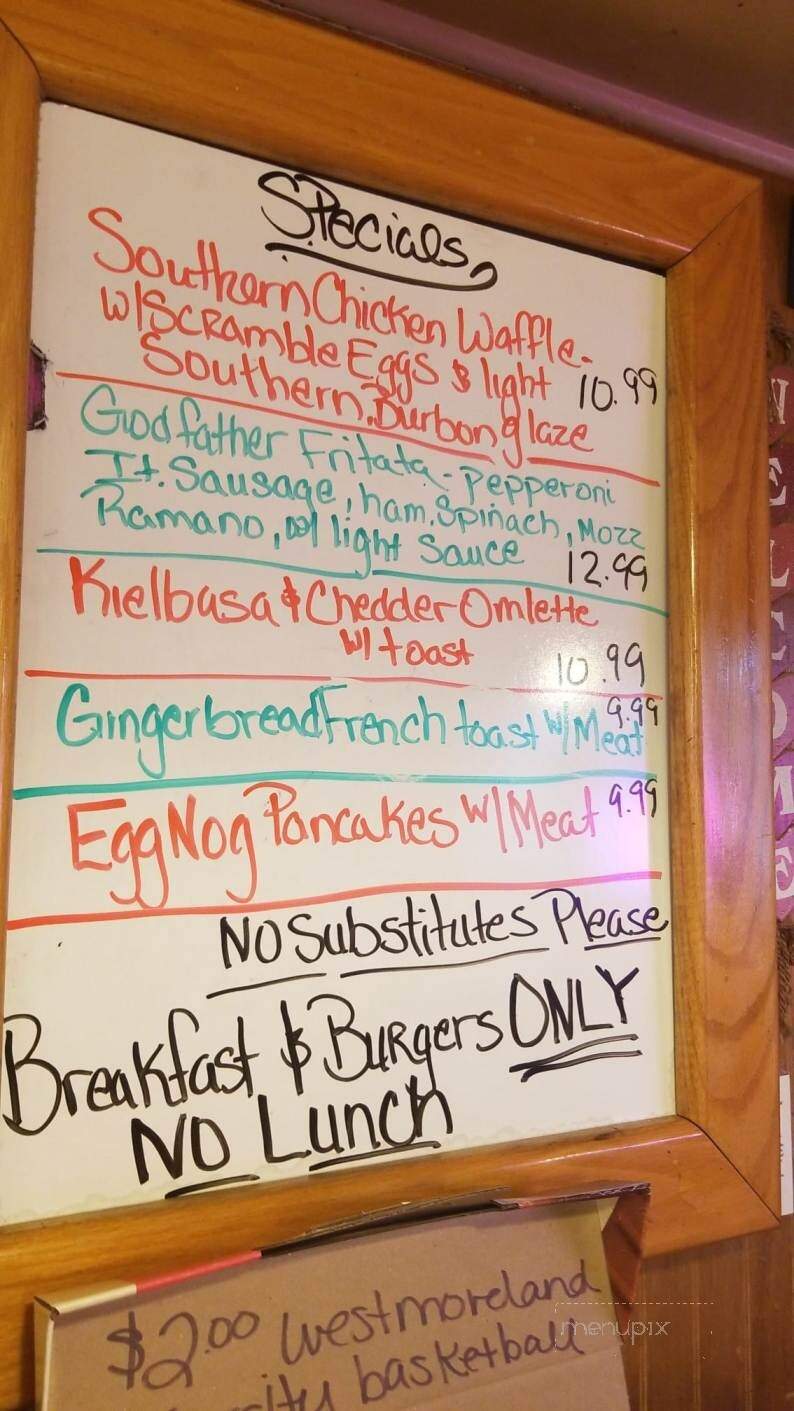 Specials
Southern Chicken Waffle
w/Scramble Eggs & light 10.99
Southern Burbon glaze
Godfather Fritata - Pepperoni
It. Sausage, ham, Spinach, Mozz
Ramano, w/ light Sauce 12.99
Kielbasa & Chedder Omlette
w/ toast
10.99
Gingerbread French toast w/Meat 9.99
Egg Nog Pancakes w/Meat 9.99
No Substitutes Please
Breakfast & Burgers ONLY
NO Lunch
$2.00 westmoreland
basketball
menupix
WELCOME